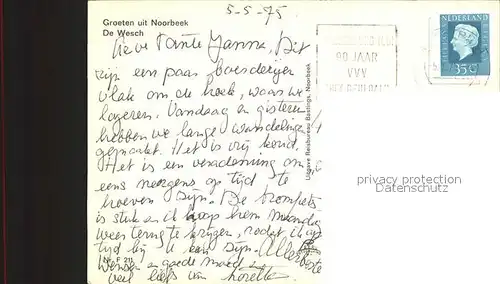 Groeten uit Noorbeek
De Wesch
5-5-75
NEDERLAND
35 c
80 JAAR
VVV
Lieve Tante Janna, Dit
zijn een paar boerderijen
vlak om de hoek, waar we
logeren. Vandaag en gisteren
hebben we lange wandelingen
gemaakt. Het is vrij koud.
Het is een verademing om
eens nergens op tijd te
hoeven zijn. De trompet
is stuk en ik hoop hem maandag
weer terug te krijgen, zodat ik op
tijd bij u kan zijn. Alle
wensen en goede moed en
veel liefs van Loretta
Nr. F 211
Uitgave Reisbureau Noorbeek
privacy protection
Datenschutz